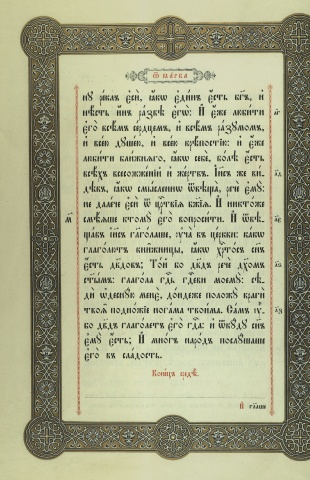 Ѿ МАРКА
ну реклъ есѝ, ꙗкѡ еди́нъ є҆сть бг҃ъ, и҆
нѣ́сть и҆́нъ ра́звѣ є҆гѡ̀: И҆ є҆́же люби́ти
є҆го̀ всѣ́мъ се́рдцемъ, и҆ всѣ́мъ ра́зумомъ,
и҆ все́ю душе́ю, и҆ все́ю крѣ́постїю: и҆ є҆́же
люби́ти бли́жнѧго, ꙗ҆́кѡ себѐ, бо́лѣ є҆́сть
всѣ́хъ всесожже́нїй и҆ же́ртвъ. І҆и҃съ же ви́-
дѣвъ, ꙗ҆́кѡ смы́сленнѡ ѿвѣща̀, речѐ є҆мꙋ̀:
не дале́че є҆сѝ ѿ црⷭ҇твїѧ бж҃їѧ. И҆ никто́же
смѣ́ѧше ктомꙋ̀ є҆го̀ вопроси́ти. И҆ ѿвѣ-
ща́въ і҆и҃съ глаго́лаше, ᲂу҆чѧ̀ въ це́ркви: ка́кѡ
глаго́лютъ кни́жницы, ꙗ҆́кѡ хрⷭ҇то́съ сн҃ъ
є҆́сть дв҃довъ; То́й бо дв҃дъ речѐ дх҃омъ
ст҃ы́мъ: глаго́ла гдⷭ҇ь гдⷭ҇еви моемꙋ̀: сѣ-
дѝ ѡ҆деснꙋ́ю менє̀, до́ндеже положꙋ̀ врагѝ
твоѧ̑ подно́жїе нога́ма твои́ма. Са́мъ ᲂу҆́-
бо дв҃дъ глаго́летъ є҆го̀ гдⷭ҇а: и҆ ѿкꙋ́дꙋ сн҃ъ
є҆мꙋ̀ є҆́сть; И҆ мно́гъ наро́дъ послꙋ́шаше
є҆го̀ въ сла́дость.
Коне́цъ недѣ́ли.